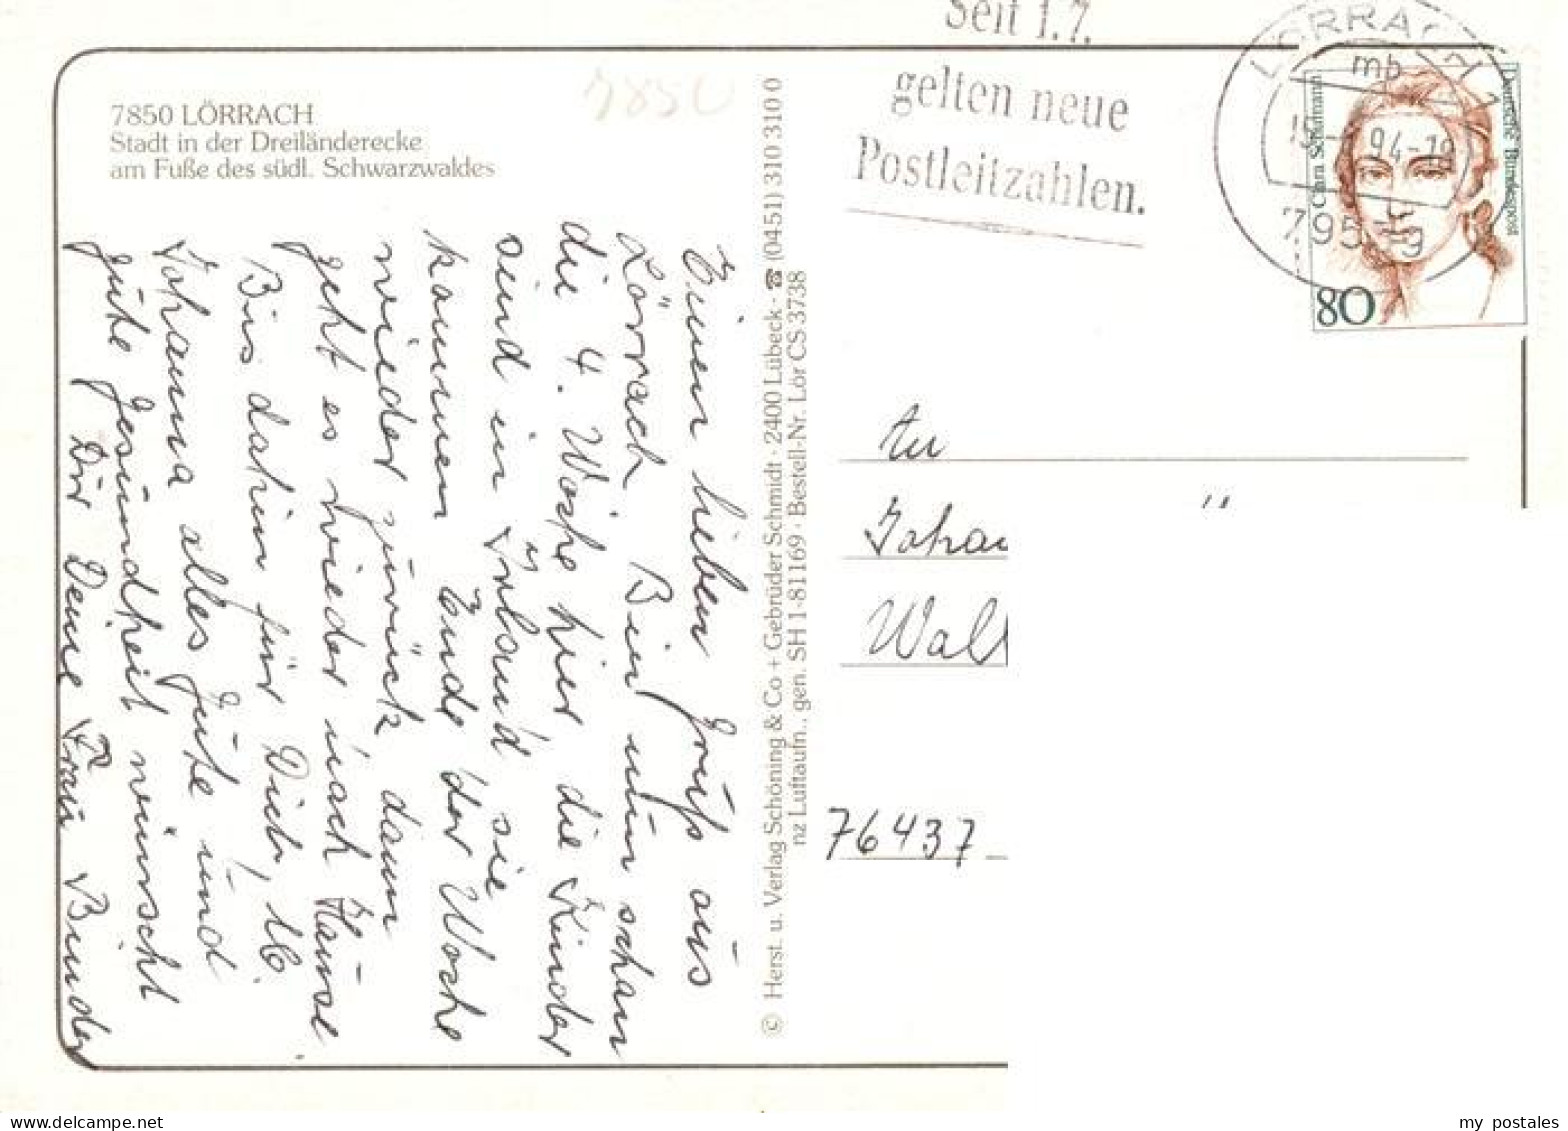 7850 LÖRRACH
Stadt in der Dreiländerecke
am Fuße des südl. Schwarzwaldes
7850
Einen lieben Gruß aus
Lörrach. Bin nun schon
die 4. Woche hier, die Kinder
sind in Urlaub, sie
kommen Ende der Woche
wieder zurück dann
geht es wieder nach Hause.
Bis dahin für Dich, lb.
Johanna alles Gute und
gute Gesundheit wünscht
Dir Deine Frau Binder
© Herst. u. Verlag Schöning & Co + Gebrüder Schmidt · 2400 Lübeck · ☎ (0451) 310 310 0
nz Luftaufn., gen. SH 1-81169 · Bestell-Nr. Lör CS 3738
Seit 1.7.
gelten neue
Postleitzahlen.
LÖRRACH 1
mb
94-19
795
Clara Schumann
Deutsche Bundespost
80
An
Johan
Wal
76437
my postales